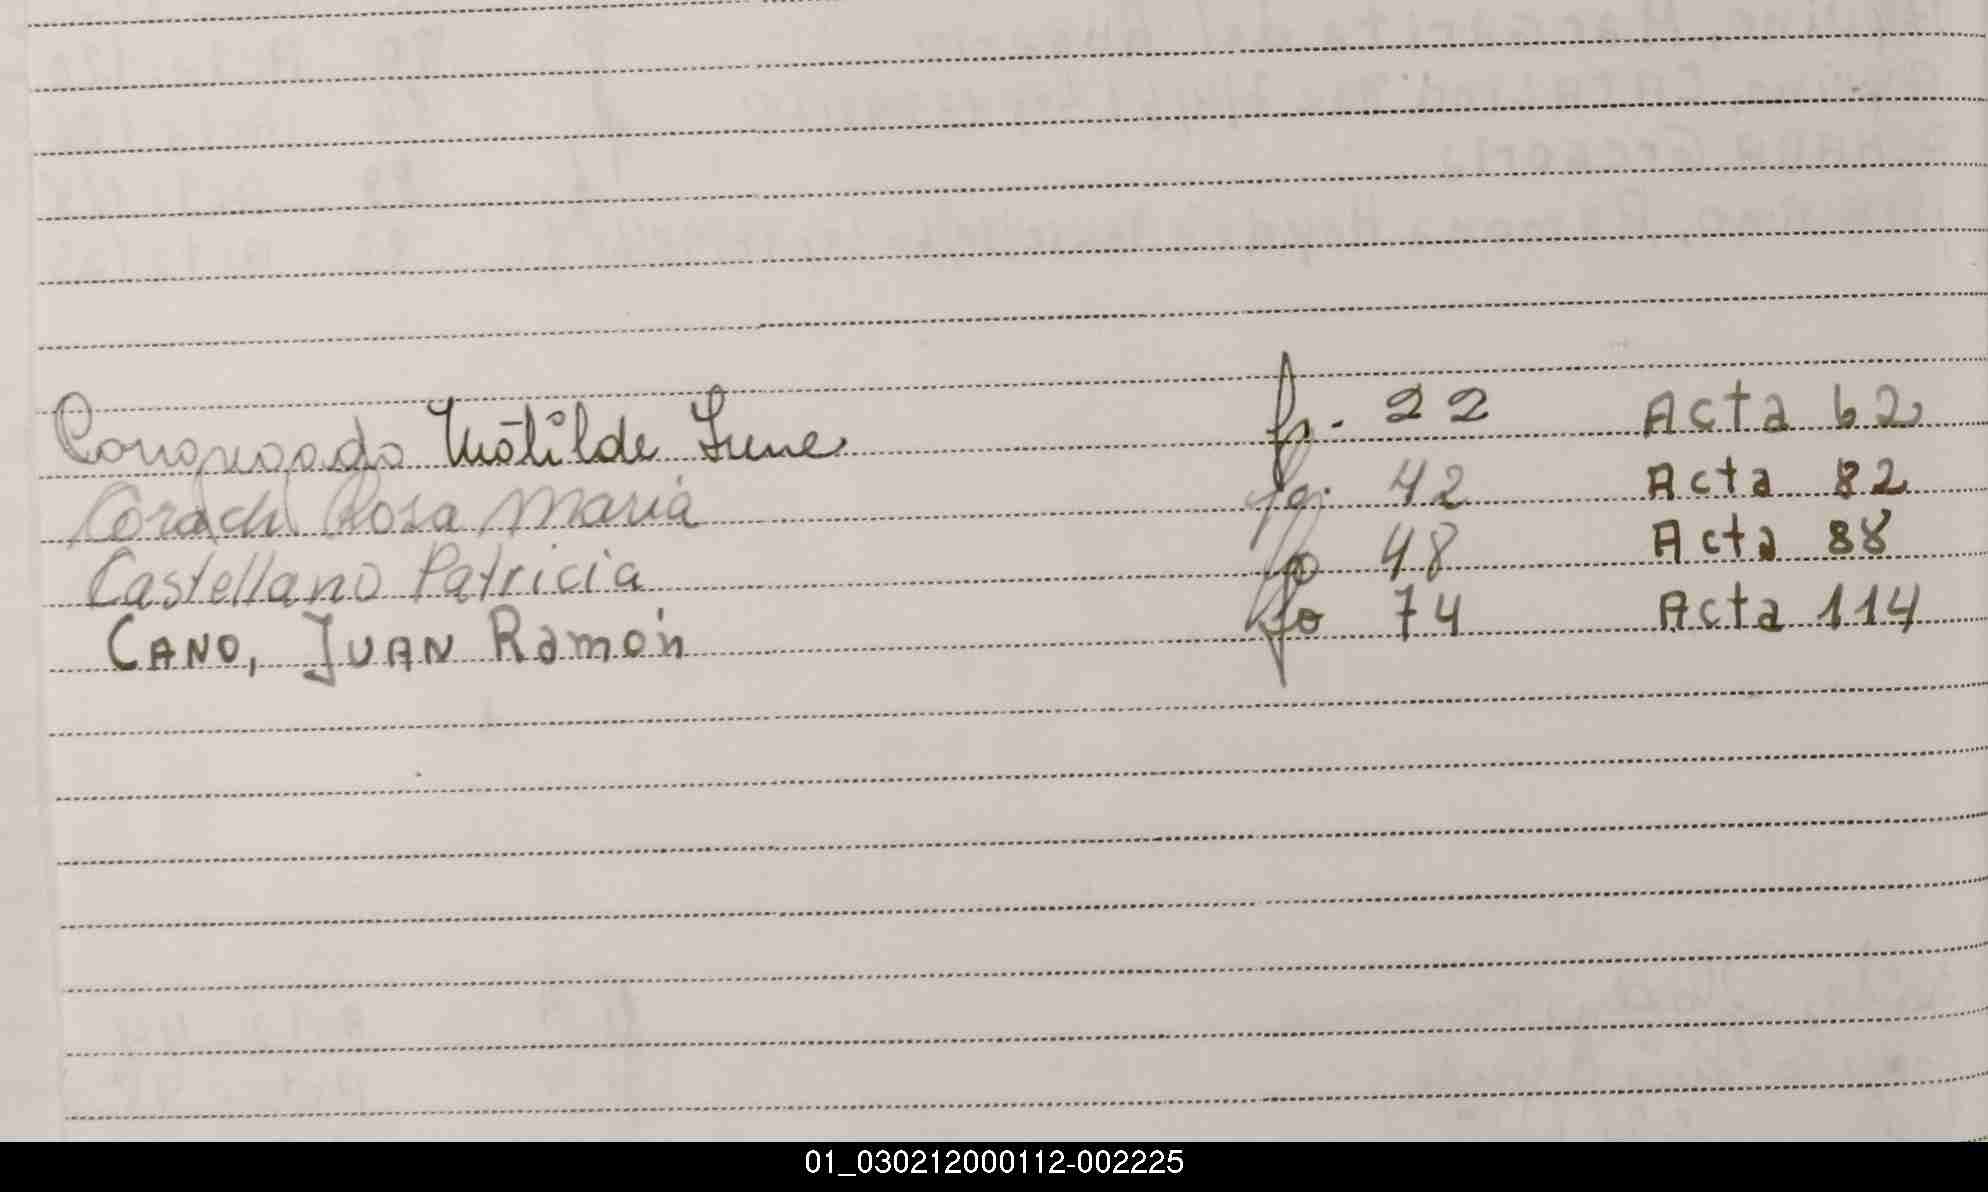 Matilde Irene fo. 22 Acta 62
Corach Rosa Maria fo. 42 Acta 82
Castellano Patricia fo 48 Acta 88
CANO, JUAN Ramón fo 74 Acta 114
01_030212000112-002225